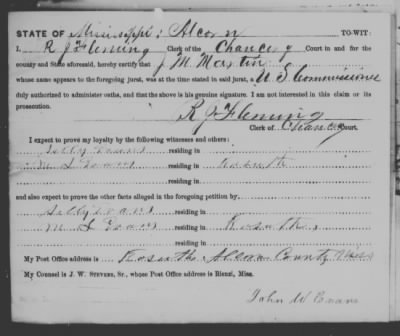 STATE OF Mississippi : Alcorn TO-WIT:
I, R J Fleming Clerk of the Chancery Court in and for the
county and State aforesaid, hereby certify that J M Martin
whose name appears to the foregoing jurat, was at the time stated in said jurat, a U S Commissioner
duly authorized to administer oaths, and that the above is his genuine signature. I am not interested in this claim or its
prosecution.
R J Fleming
Clerk of Chancery Court.
I expect to prove my loyalty by the following witnesses and others:
Evans residing in
M L Evans residing in Kosuth
residing in
and also expect to prove the other facts alleged in the foregoing petition by
Evans residing in
M L Evans residing in Kosuth,
residing in
My Post Office address is Kosuth Alcorn County Miss
My Counsel is J. W. STEVENS, Sr., whose Post Office address is Rienzi, Miss.
John W Evans